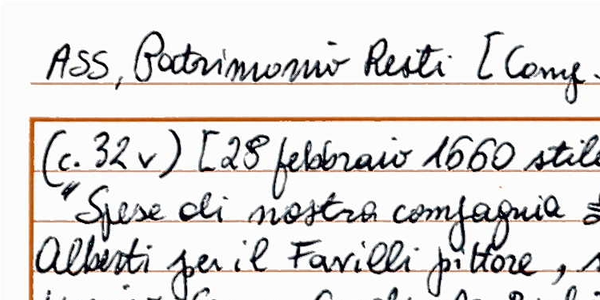 ASS, Patrimonio Resti [Comp.
(c. 32 v) [28 febbraio 1660 stile
"Spese di nostra compagnia
Alberti per il Favilli pittore,